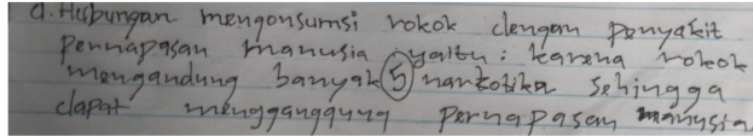 d. Hubungan mengonsumsi rokok dengan penyakit
pernapasan manusia yaitu : karena rokok
mengandung banyak (5) narkotika sehingga
dapat menggangguny pernapasan manusia